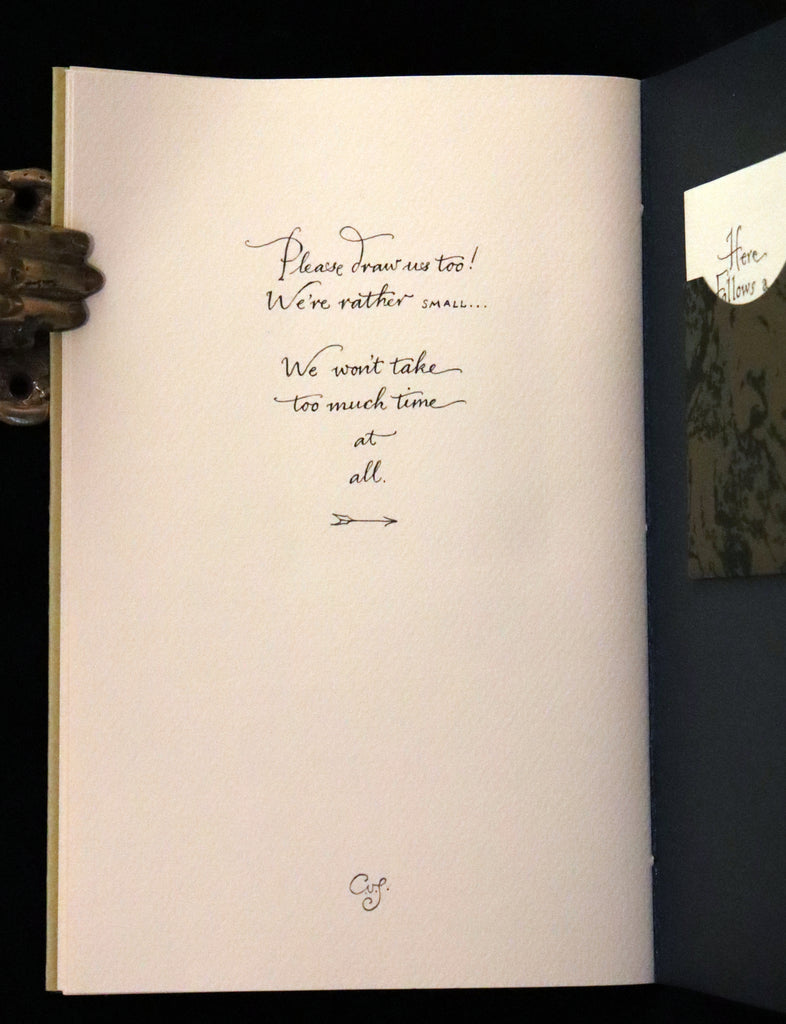 Please draw us too!
We're rather SMALL...
We won't take
too much time
at
all.
Cvs.
Here
Follows a